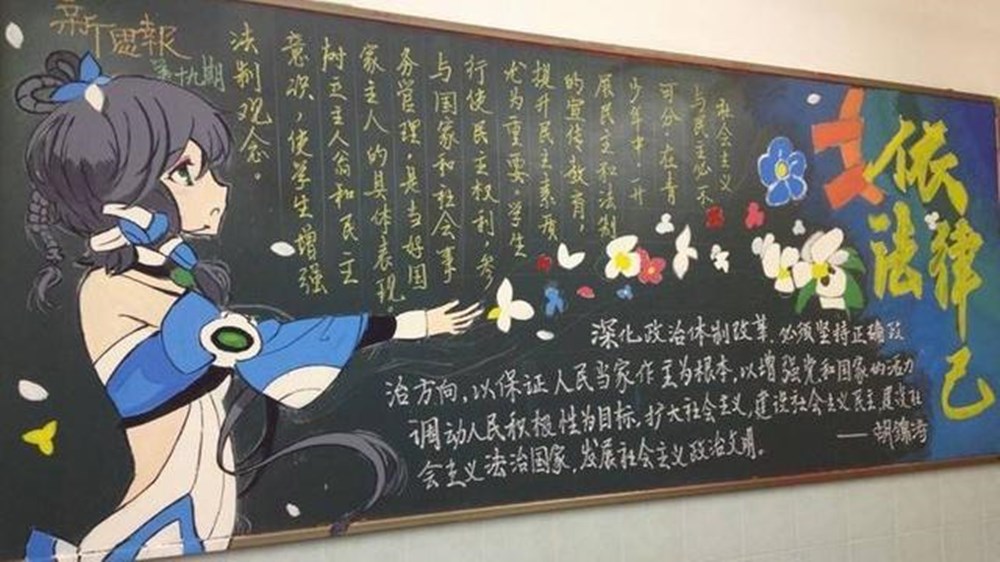 新思報
第十九期
依法
律己
社会主义
与民主必不
可分,在青
少年中,开
展民主和法制
的宣传教育,
提升民主素质
尤为重要。学生
行使民主权利,参
与国家和社会事
务管理,是当好国
家主人的具体表现
树立主人翁和民主
意识,使学生增强
法制观念。
深化政治体制改革,必须坚持正确政
治方向,以保证人民当家作主为根本,以增强党和国家的活力
调动人民积极性为目标,扩大社会主义,建设社会主义民主,建设社
会主义法治国家,发展社会主义政治文明。
——胡锦涛